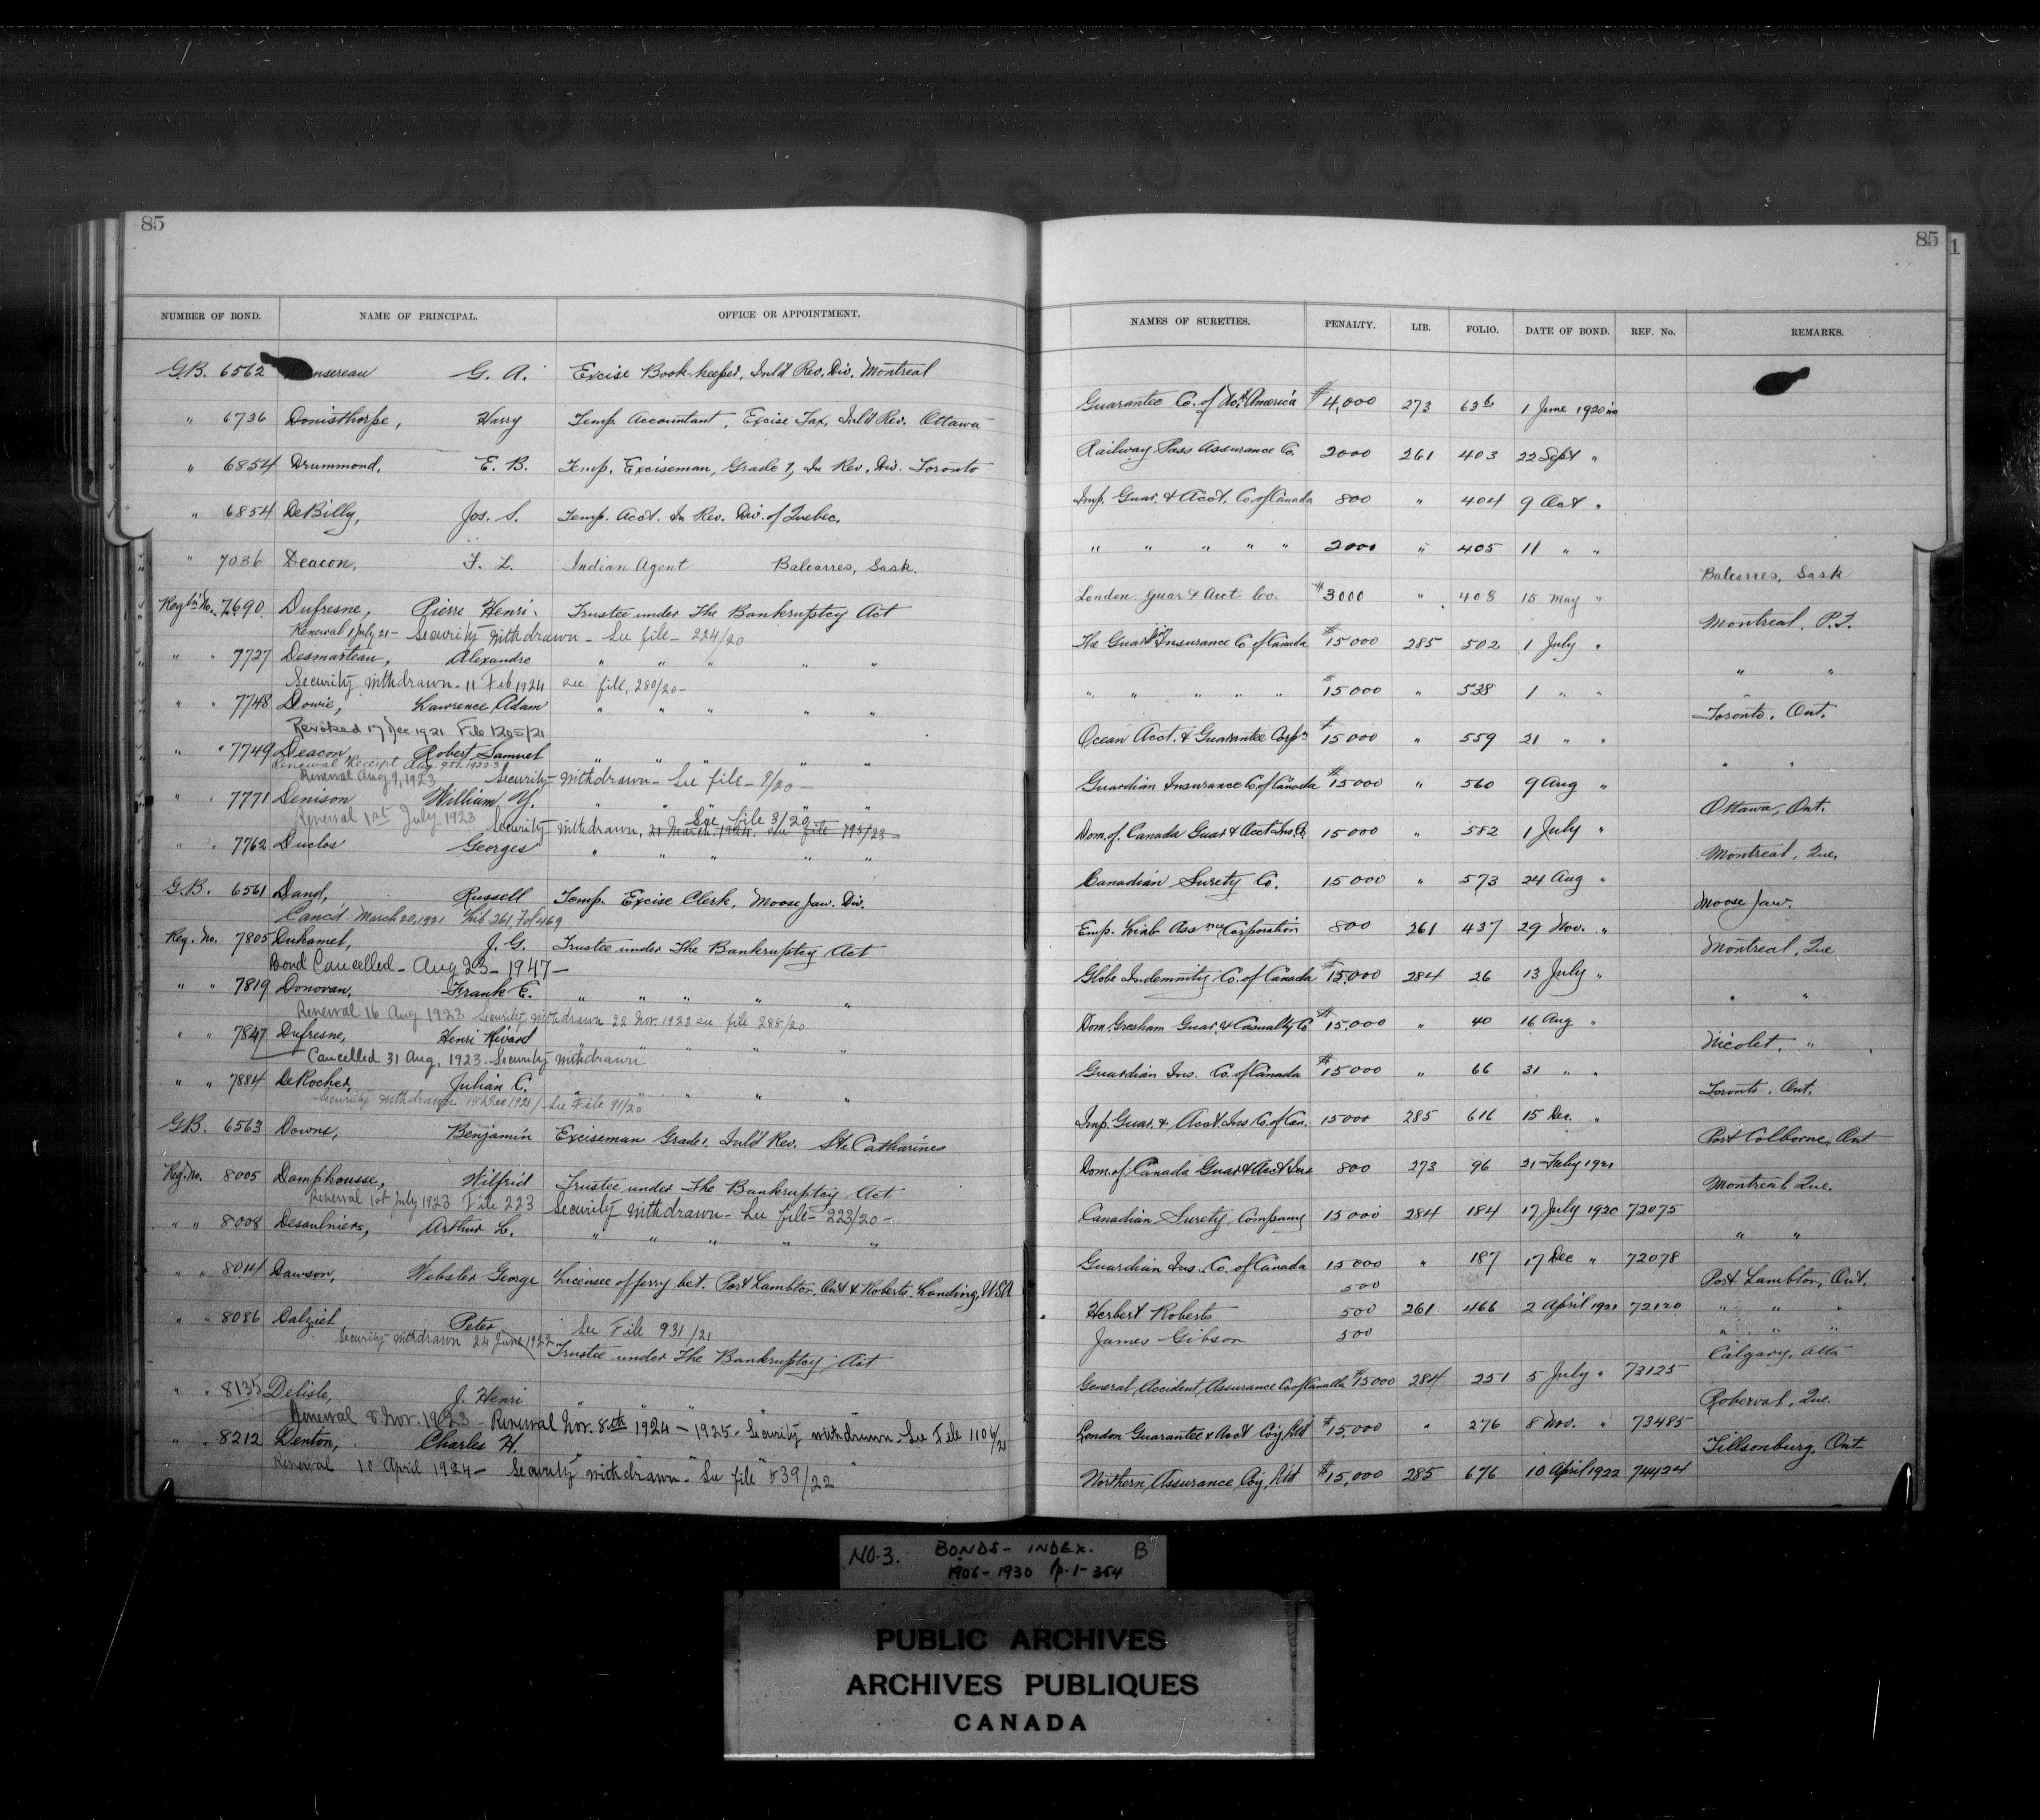 85
NUMBER OF BOND. NAME OF PRINCIPAL. OFFICE OR APPOINTMENT.
G.B. 6562 nsereau G. A. Excise Book-keeper, Inl'd Rev. Div. Montreal
" 6736 Donisthorpe, Harry Temp. Accountant, Excise Tax, Inl'd Rev. Ottawa
" 6854 Drummond, E. B. Temp. Exciseman, Grade 1, In Rev. Div. Toronto
" 6854 DeBilly, Jos. S. Temp. Acct. In Rev. Div. of Quebec.
" 7036 Deacon, F. L. Indian Agent Balcarres, Sask.
No. 7690. Dufresne, Pierre Henri. Trustee under The Bankruptcy Act
Renewal 1 July 21 - Security withdrawn - See file - 224/20
" " 7727 Desmarteau, Alexandre " " " " "
Security withdrawn - 11 Feb 1924 see file, 280/20 -
" " 7748 Dowie, Lawrence Adam " " " " "
Revoked 17 Dec 1921 File 1205/21
" " 7749 Deacon, Robert Samuel " " " " "
Renewal Receipt Aug. 9th 1922-3
Renewal Aug 9, 1923 Security withdrawn - See file - 9/20 -
" " 7771 Denison William Y. " " " " "
See file 3/20
Renewal 1st July 1923 Security withdrawn, 21 March, 1924. see file 795/23 -
" " 7762 Duclos Georges " " " " "
G.B. 6561 Dand, Russell Temp. Excise Clerk, Moose Jaw. Div.
Canc'd March 20, 1921 Lib. 261, Fol 469
Reg. No. 7805 Duhamel, J. G. Trustee under The Bankruptcy Act
Bond Cancelled - Aug 23 - 1947 -
" " 7819 Donovan, Frank E. " " " " "
Renewal 16 Aug 1923 Security withdrawn 22 Nov. 1923 see file 285/20
" " 7847 Dufresne, Henri Rivard " " " "
Cancelled 31 Aug. 1923. Security withdrawn
" " 7884 DeRocher, Julian C. " " " " "
Security withdrawn 15 Dec 1921 / See File 91/20
G.B. 6563 Downs, Benjamin Exciseman Grade 1, Inl'd Rev. St. Catharines
Reg. No. 8005 Damphousse, Wilfrid Trustee under The Bankruptcy Act
Renewal 1st July 1923 File 223 Security withdrawn - See file - 223/20 -
" " 8008 Desaulniers, Arthur L. " " " " "
" " 8014 Dawson, Webster George Licensee of ferry bet. Port Lambton, Ont & Roberts Landing, USA
" " 8086 Dalziel Peter See File 931/21
Security withdrawn 24 June 1922 Trustee under The Bankruptcy Act
" " 8135 Delisle, J. Henri " " "
Renewal 8 Nov. 1923 - Renewal Nov. 8th 1924 - 1925 - Security withdrawn - See File 1106/21
" " 8212 Denton, Charles H. " " "
Renewal 10 April 1924 - Security withdrawn - See file 539/22
85
1
NAMES OF SURETIES. PENALTY. LIB. FOLIO. DATE OF BOND. REF. No. REMARKS.
Guarantee Co. of No. America $4,000 273 63 1 June 1920
Railway Pass Assurance Co. 2000 261 403 22 Sept "
Imp. Guar. & Acct. Co. of Canada 800 " 404 9 Oct "
" " " " " 2000 " 405 11 " "
London Guar & Acct Co. $3000 " 408 15 May " Balcarres, Sask
The Guardian Insurance Co. of Canada $15000 285 502 1 July " Montreal, P.Q.
" " " " " $15000 " 538 1 " " " "
Ocean Acct. & Guarantee Corp'n $15000 " 559 21 " " Toronto, Ont.
Guardian Insurance Co. of Canada $15000 " 560 9 Aug " " "
Dom. of Canada Guar & Acct Ins. Co. 15000 " 582 1 July " Ottawa, Ont.
Canadian Surety Co. 15000 " 573 24 Aug " Montreal, Que.
Emp. Liab Ass'nce Corporation 800 261 437 29 Nov. " Moose Jaw.
Globe Indemnity Co. of Canada $15,000 284 26 13 July " Montreal, Que
Dom. Gresham Guar. & Casualty Co $15,000 " 40 16 Aug " " "
Guardian Ins. Co. of Canada $15000 " 66 31 " " Nicolet, "
Imp. Guar. & Acct. Ins Co. of Can. 15000 285 616 15 Dec. " Toronto, Ont.
Dom. of Canada Guar & Acct Ins 800 273 96 21 July 1921 Port Colborne, Ont
Canadian Surety Company 15000 284 184 17 July 1920 72075 Montreal Que.
Guardian Ins. Co. of Canada 15000 " 187 17 Dec " 72078 " "
500
Herbert Roberts 500 261 466 2 April 1921 72120 Port Lambton, Ont.
" " "
James Gibson 500 " " "
General Accident Assurance Co of Canada $15000 284 251 5 July " 73125 Calgary, Alta
London Guarantee & Acct Coy, Ltd $15,000 " 276 8 Nov. " 73485 Roberval, Que.
Northern Assurance Coy, Ltd $15,000 285 676 10 April 1922 74424 Tillsonburg, Ont
NO. 3. BONDS - INDEX. B
1906-1930 p. 1-354
PUBLIC ARCHIVES
ARCHIVES PUBLIQUES
CANADA